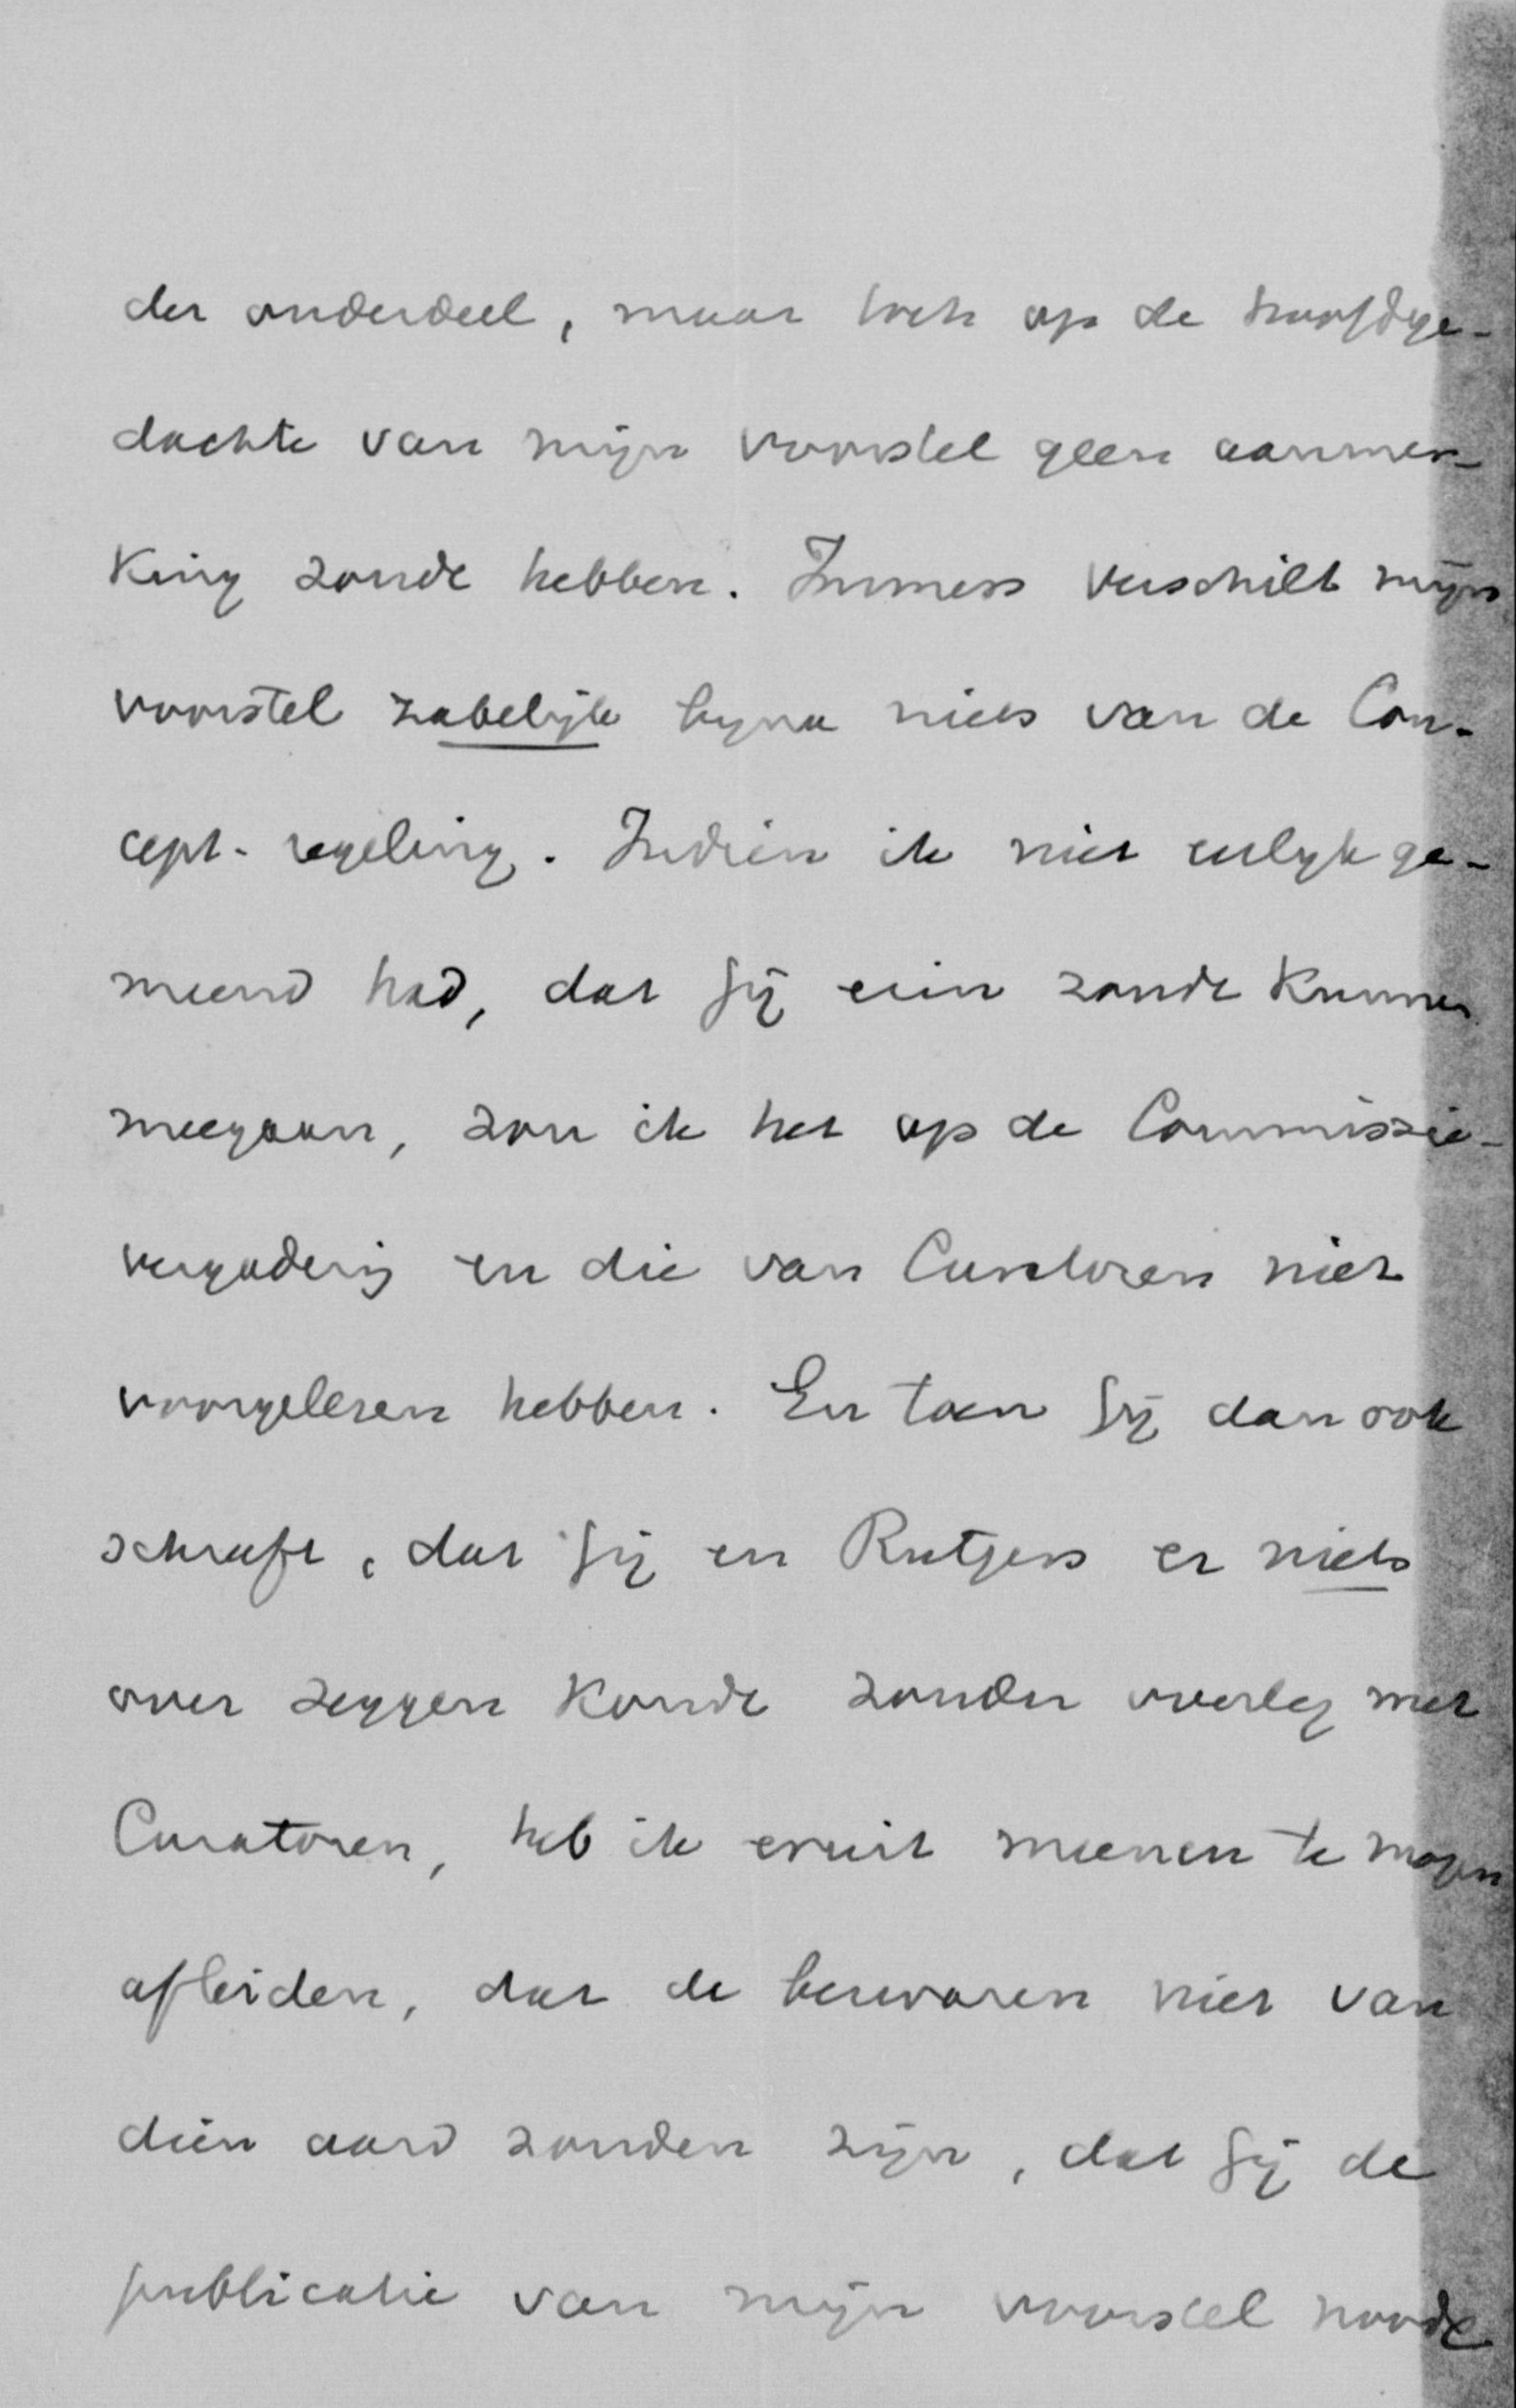 der onderdeel, maar toch op de hoofdge-
dachte van mijn voorstel geen aanmer-
king zoude hebben. Immers verschilt mijn
voorstel zakelijk byna niets van de Con-
cept-regeling. Indien ik niet eerlyk ge-
meend had, dat Gij erin zoudt kunnen
meegaan, zou ik het op de Commissie-
vergadering en die van Curatoren niet
voorgelezen hebben. En toen Gij dan ook
schreeft, dat Gij en Rutgers er niets
over zeggen kondt zonder overleg met
Curatoren, heb ik eruit meenen te mogen
afleiden, dat de bezwaren niet van
dien aard zouden zijn, dat Gij de
publicatie van mijn voorstel noode